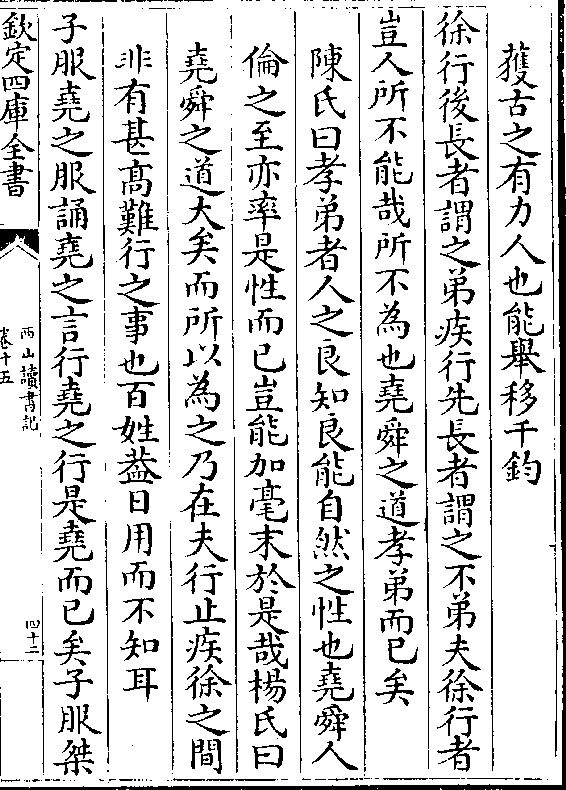 獲古之有力人也能舉移千鈞
徐行後長者謂之弟疾行先長者謂之不弟夫徐行者
豈人所不能哉所不為也堯舜之道孝弟而已矣
陳氏曰孝弟者人之良知良能自然之性也堯舜人
倫之至亦率是性而已豈能加毫末於是哉楊氏曰
堯舜之道大矣而所以為之乃在夫行止疾徐之間
非有甚髙難行之事也百姓葢日用而不知耳
子服堯之服誦堯之言行堯之行是堯而已矣子服桀
欽定四庫全書
西山讀書記
卷十五
四十二